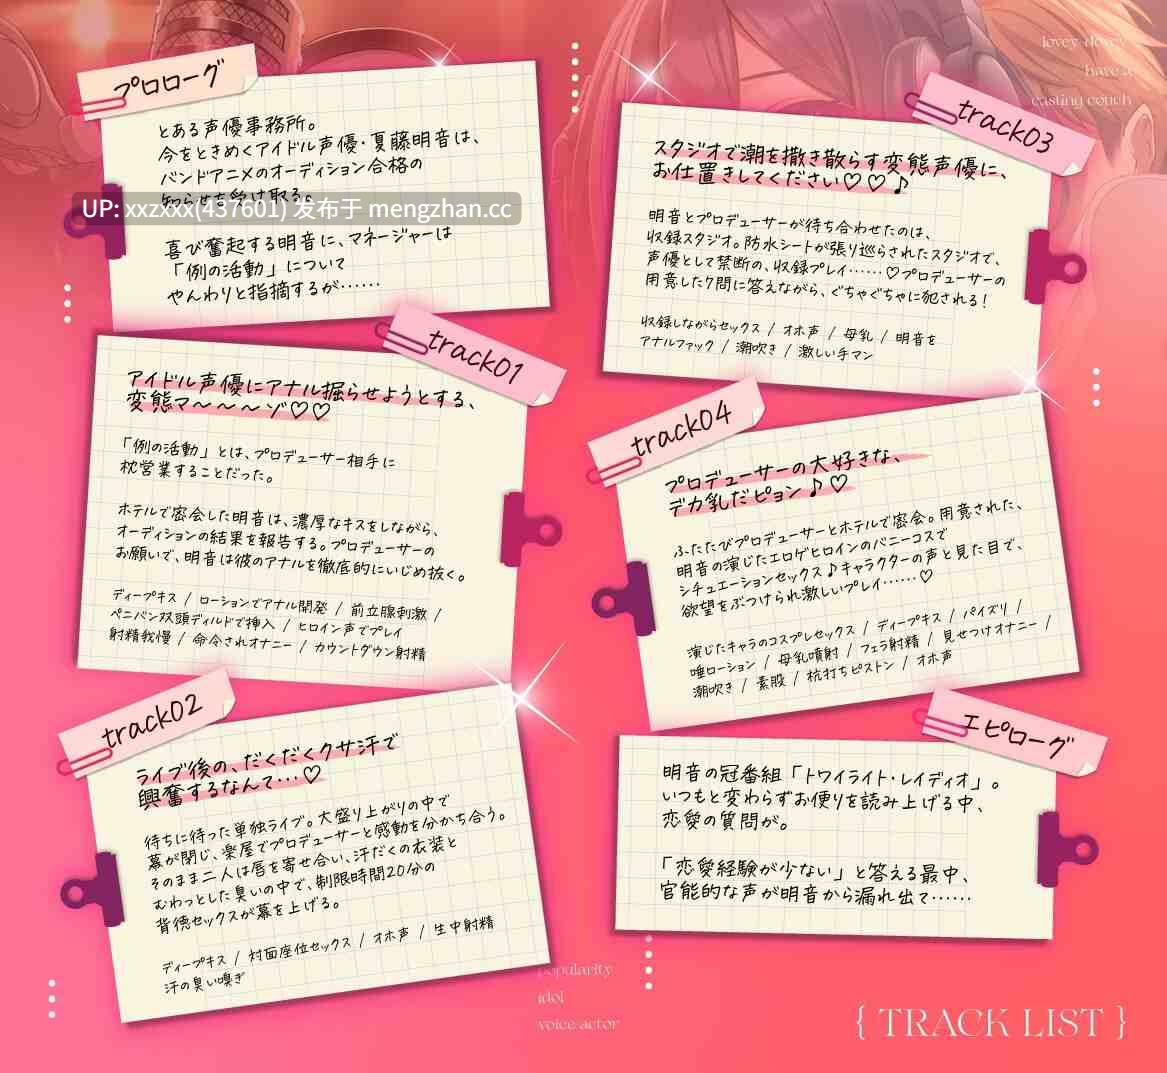 プロローグ
とある声優事務所。
今をときめくアイドル声優・夏藤明音は、
バンドアニメのオーディション合格の
知らせを受け取る。
UP: xxzxxx(437601) 发布于 mengzhan.cc
喜び奮起する明音に、マネージャーは
「例の活動」について
やんわりと指摘するが……
track01
アイドル声優にアナル掘らせようとする、
変態マ～～～ゾ♡♡
「例の活動」とは、プロデューサー相手に
枕営業することだった。
ホテルで密会した明音は、濃厚なキスをしながら、
オーディションの結果を報告する。プロデューサーの
お願いで、明音は彼のアナルを徹底的にいじめ抜く。
ディープキス / ローションでアナル開発 / 前立腺刺激 /
ペニバン双頭ディルドで挿入 / ヒロイン声でプレイ
射精我慢 / 命令されオナニー / カウントダウン射精
track02
ライブ後の、だくだくクサ汗で
興奮するなんて…♡
待ちに待った単独ライブ。大盛り上がりの中で
幕が閉じ、楽屋でプロデューサーと感動を分かち合う。
そのまま二人は唇を寄せ合い、汗だくの衣装と
むわっとした臭いの中で、制限時間20分の
背徳セックスが幕を上げる。
ディープキス / 対面座位セックス / オホ声 / 生中射精
汗の臭い嗅ぎ
lovey-dovey
have a
casting couch
track03
スタジオで潮を撒き散らす変態声優に、
お仕置きしてください♡♡♪
明音とプロデューサーが待ち合わせたのは、
収録スタジオ。防水シートが張り巡らされたスタジオで、
声優として禁断の、収録プレイ……♡プロデューサーの
用意した7問に答えながら、ぐちゃぐちゃに犯される！
収録しながらセックス / オホ声 / 母乳 / 明音を
アナルファック / 潮吹き / 激しい手マン
track04
プロデューサーの大好きな、
デカ乳だピョン♪♡
ふたたびプロデューサーとホテルで密会。用意された、
明音の演じたエロゲヒロインのバニーコスで
シチュエーションセックス♪キャラクターの声と見た目で、
欲望をぶつけられ激しいプレイ……♡
演じたキャラのコスプレセックス / ディープキス / パイズリ /
唾ローション / 母乳噴射 / フェラ射精 / 見せつけオナニー /
潮吹き / 素股 / 杭打ちピストン / オホ声
エピローグ
明音の冠番組「トワイライト・レイディオ」。
いつもと変わらずお便りを読み上げる中、
恋愛の質問が。
「恋愛経験が少ない」と答える最中、
官能的な声が明音から漏れ出て……
popularity
idol
voice actor
{ TRACK LIST }